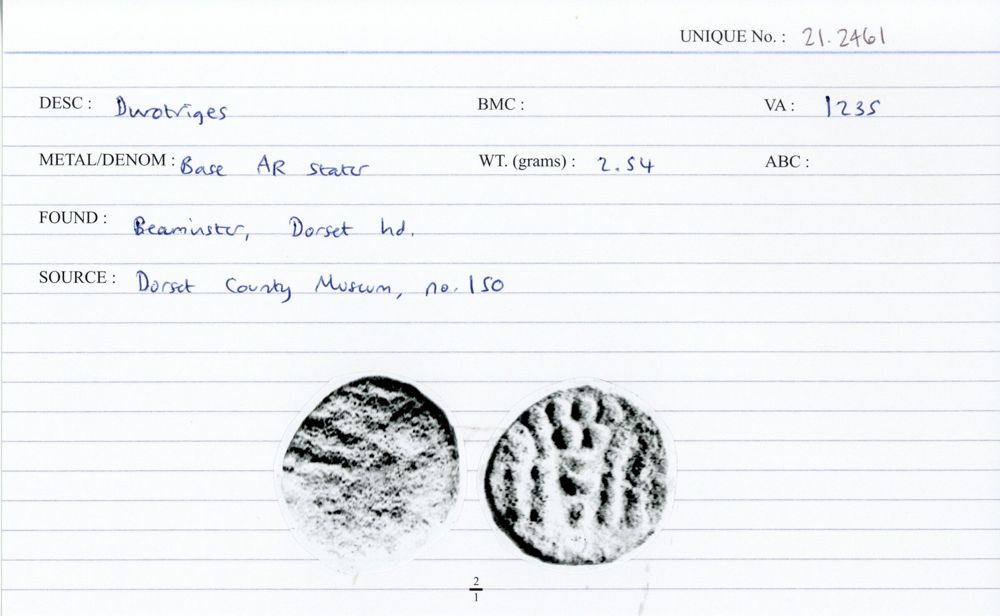 UNIQUE No. : 21.2461
DESC : Durotriges BMC : VA : 1235
METAL/DENOM : Base AR stater WT. (grams) : 2.54 ABC :
FOUND : Beaminster, Dorset hd.
SOURCE : Dorset County Museum, no. 150
2
1